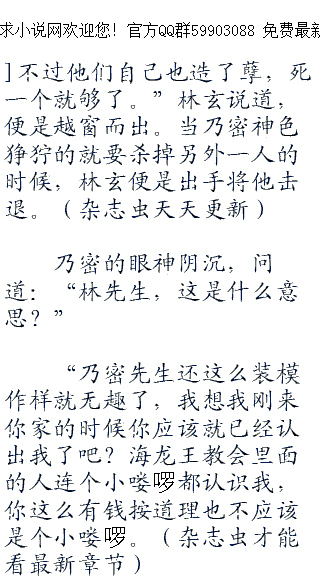 求小说网欢迎您！官方QQ群59903088 免费最新
]不过他们自己也造了孽，死
一个就够了。”林玄说道，
便是越窗而出。当乃密神色
狰狞的就要杀掉另外一人的
时候，林玄便是出手将他击
退。（杂志虫天天更新）
乃密的眼神阴沉，问
道：“林先生，这是什么意
思？”
“乃密先生还这么装模
作样就无趣了，我想我刚来
你家的时候你应该就已经认
出我了吧？海龙王教会里面
的人连个小喽啰都认识我，
你这么有钱按道理也不应该
是个小喽啰。（杂志虫才能
看最新章节）